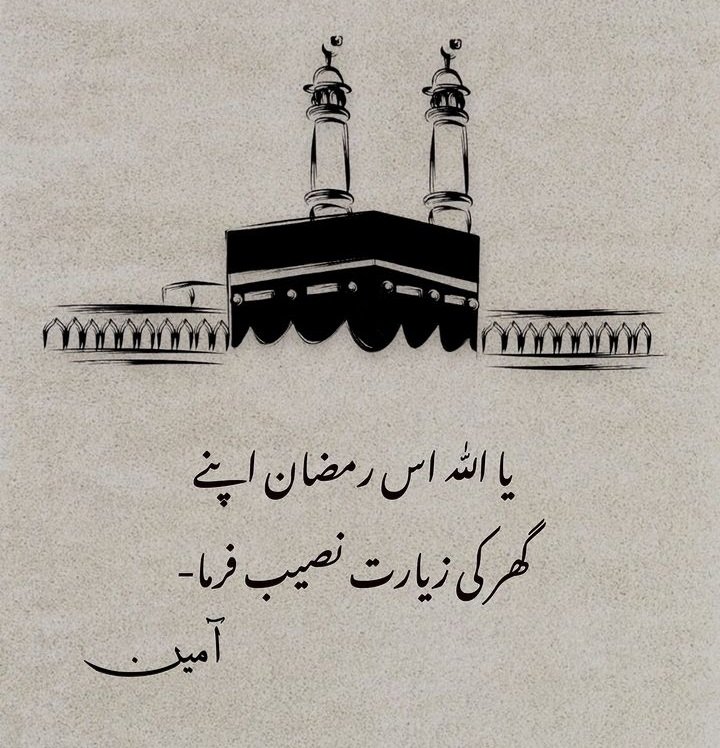 یا اللہ اس رمضان اپنے
گھر کی زیارت نصیب فرما-
آمین